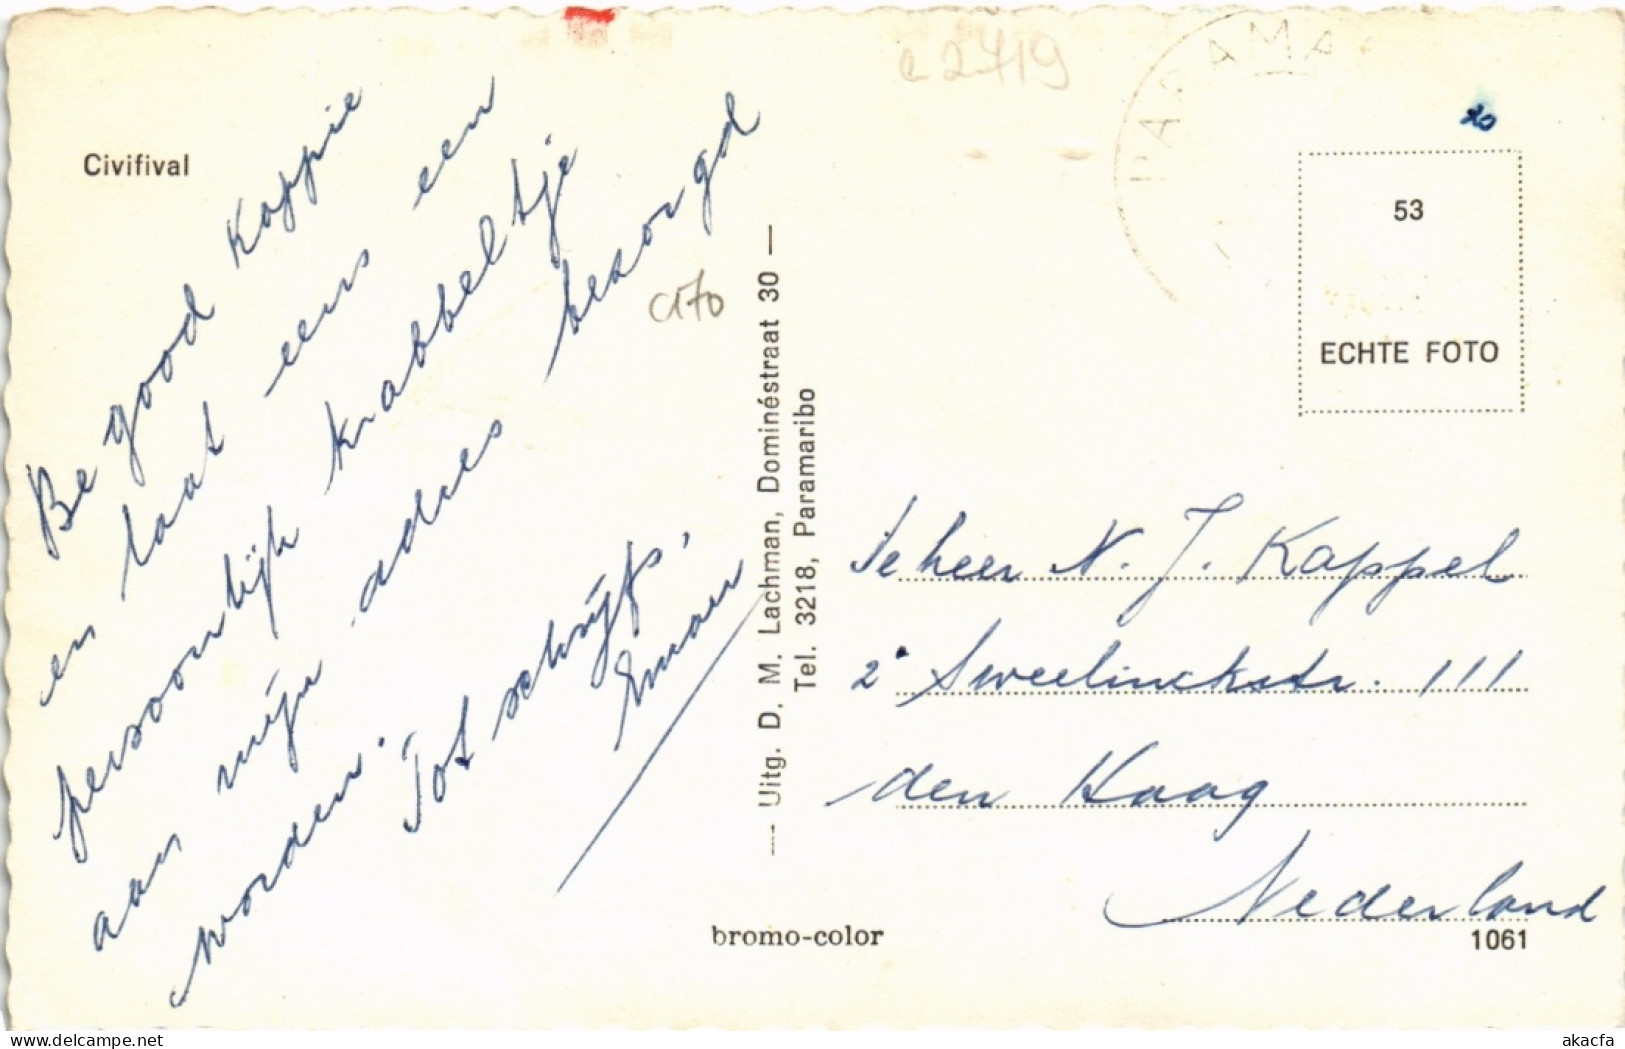 Civifival
Be good Kappie
en laat eens een
persoonlijk krabbeltje
aan mijn adres bezorgd
worden.
Tot schrijfs,
— Uitg. D. M. Lachman, Dominéstraat 30 —
Tel. 3218, Paramaribo
c170
2419
PARAMA
20
53
ECHTE FOTO
heer N. J. Kappel
2e Sweelinckstr. 111
den Haag
Nederland
bromo-color
1061
akacfa